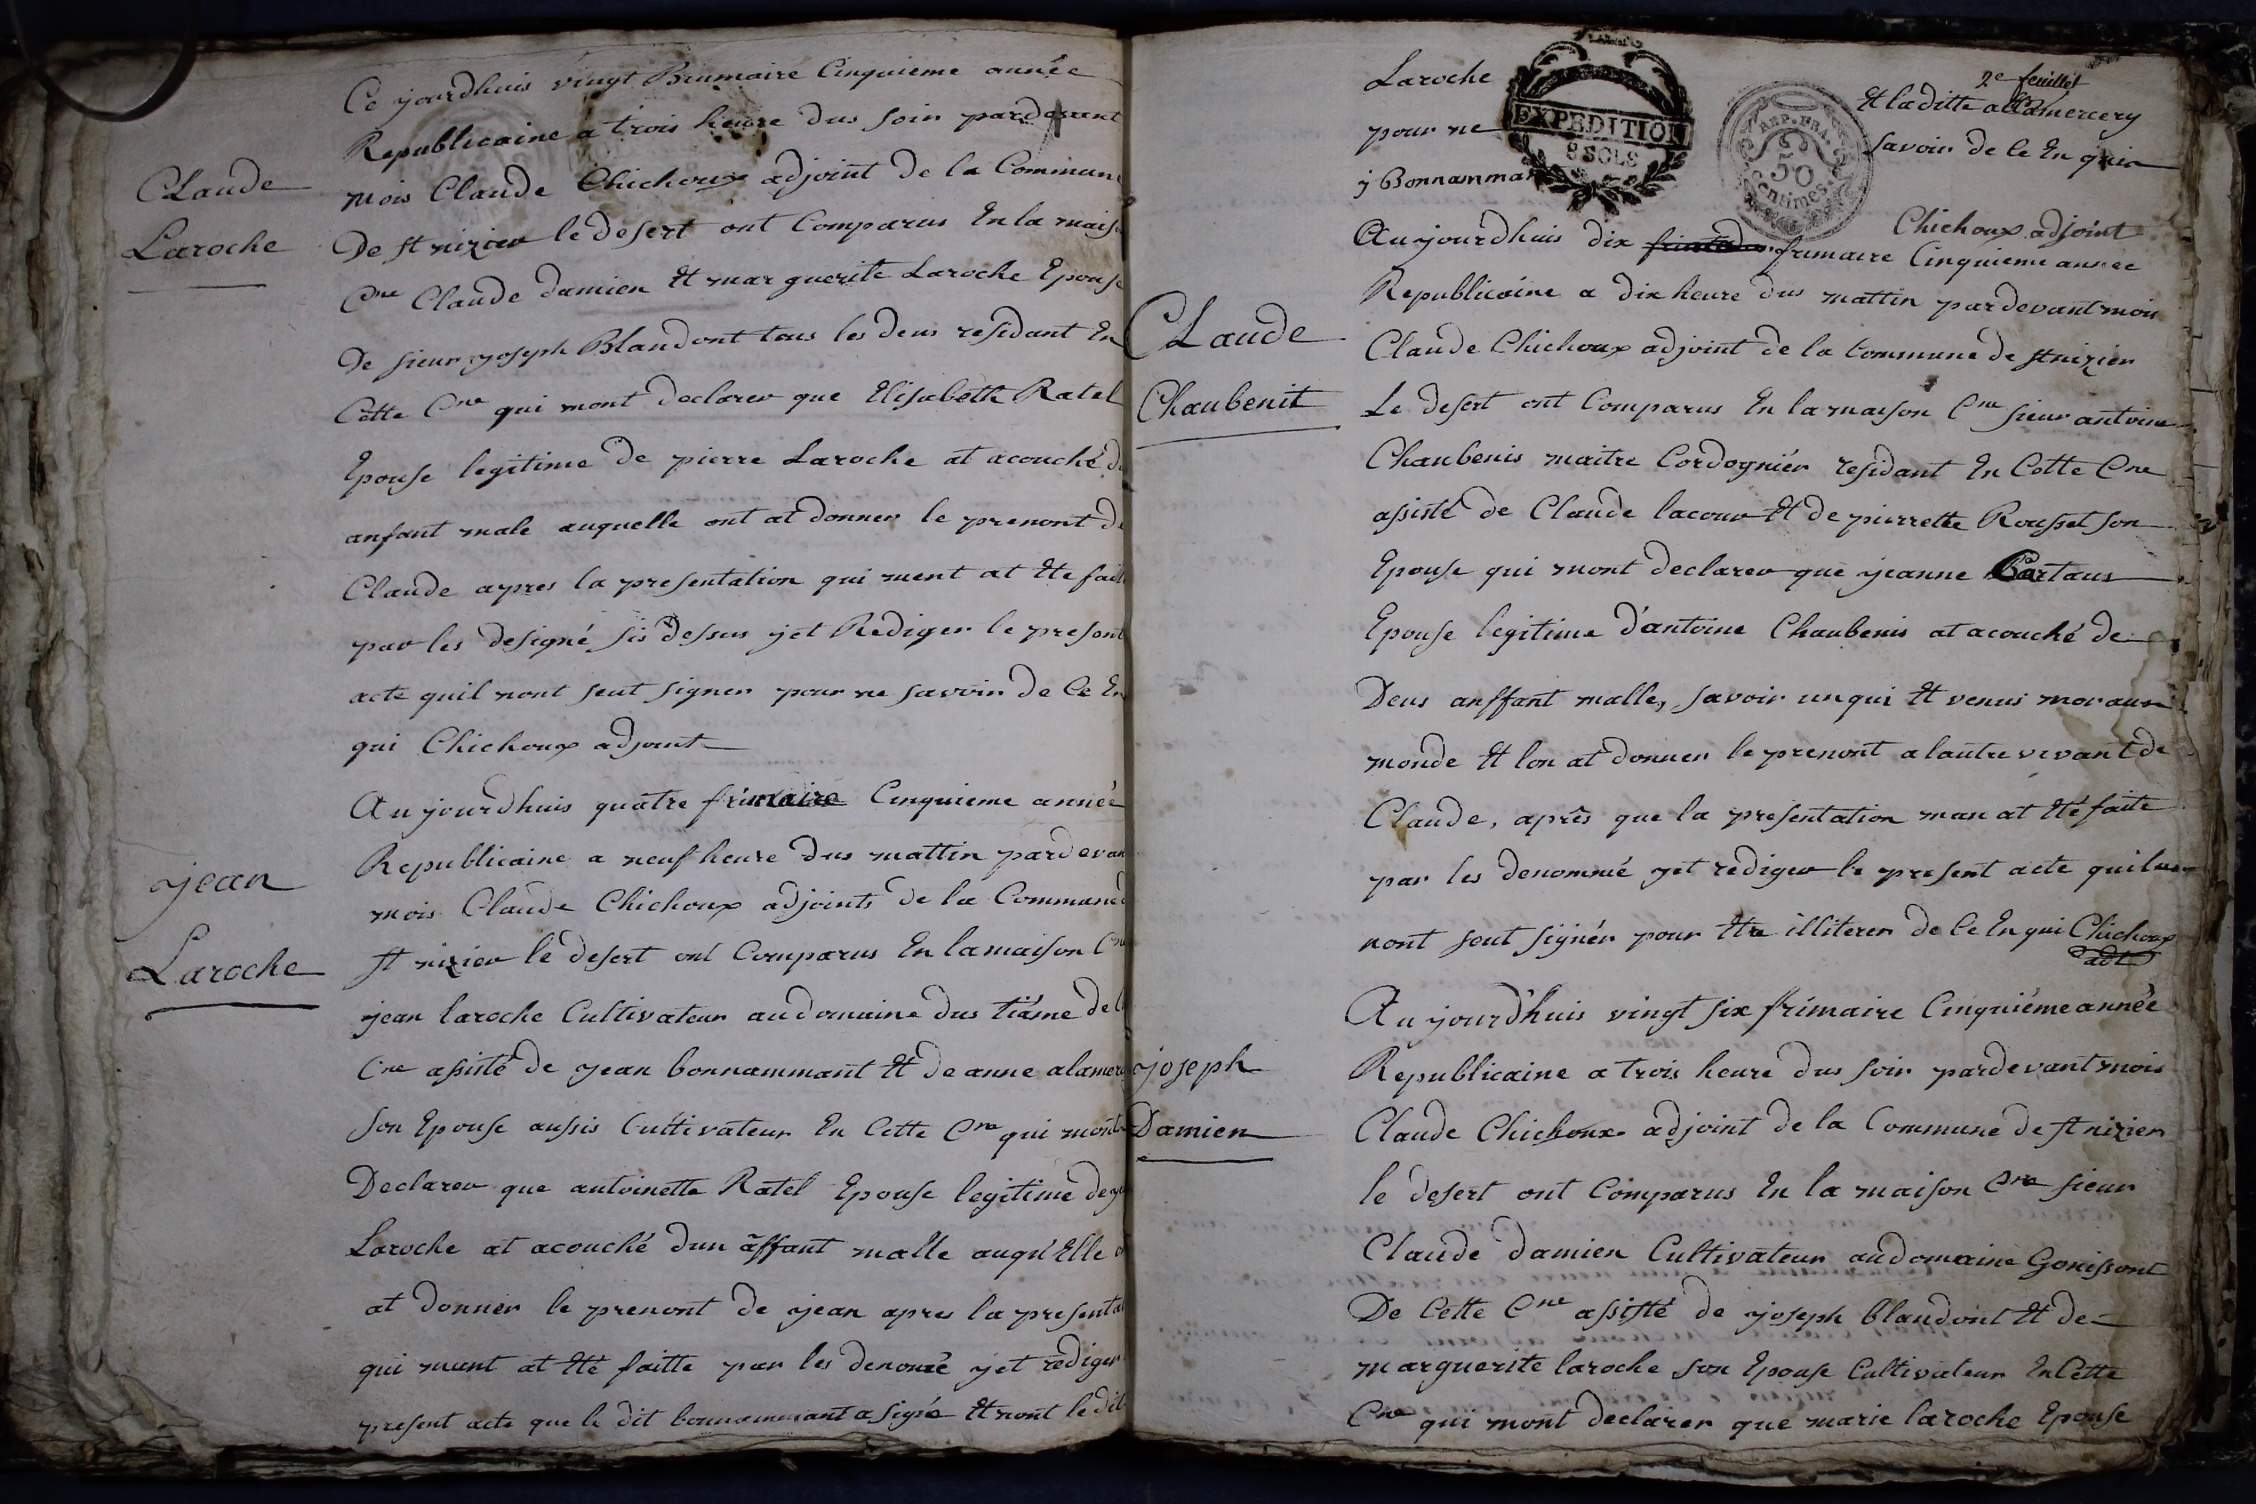 Ce yourdhuis vingt Brumaire Cinquieme année
Republicaine a trois heure dus soir pardevent
mois Claude Chichoux adjoint de la Commune
Claude
Laroche
De st nizier le desert ont Comparus En la maiso
Cne Claude damien Et marguerite Laroche Epouse
De sieur yoseph Blandont tous les deus residant En
Cette Cne qui mont declarer que Elisabeth Ratel
Epouse legitime de pierre Laroche at acouché d
anfant male auquelle ont at donner le prenont de
Claude apres la presentation qui ment at Ete faite
par les designé sis dessus yet Rediger le present
acte quil nont seut signer pour ne savoir de Ce En
qui Chichoux adjoint
Au yourdhuis quatre frimaire Cinquieme année
Republicaine a neuf heure dus mattin pardevan
mois Claude Chichoux adjoints de la Commune d
yean
Laroche
st nizier le desert ont Comparus En la maison Cne
yean laroche Cultivateur au domaine dus tiáme de
Cne asisté de yean bonnammant Et de anne alamer
son Epouse aussis Cultivateur En Cette Cne qui mont
Declarer que antoinette Ratel Epouse legitime de
Laroche at acouché dun affant malle auqu'Elle o
at donner le prenont de yean apres la presenta
qui ment at Eté faitte par les denomé yet rediger
present acte que le dit bonnammant a signé Et nont le dit
2e feuillet
Laroche Et la ditte alamercery
EXPEDITION
8 SOLS
REP. FRA.
50
centimes
pour ne savoir de Ce En qui
y Bonnamman
Chichoux adjoint
Au yourdhuis dix frimaire Cinquieme annee
Republicaine a dix heure dus mattin pardevant mois
Claude Chichoux adjoint de la Commune de st nizier
Claude
Chaubenit
Le desert ont Comparus En la maison Cne sieur antoine
Chaubenis maitre Cordognier residant En Cette Cne
asisté de Claude lacour Et de pierrette Rousset son
Epouse qui mont declarer que yeanne Cartaus
Epouse legitime d'antoine Chaubenis at acouché de
Deus anffant malle, savoir un qui Et venus mor aux
monde Et lon at donner le prenont a lautre vivant de
Claude, aprês que la presentation man at Eté faite
par les denommé yet rediger le present acte quil
nont seut signér pour Etre illiterer de Ce En qui Chichoux
adt
Au yourd'huis vingt six frimaire Cinquiéme année
Republicaine a trois heure dus soir pardevant mois
Claude Chichoux adjoint de la Commune de st nizier
yoseph
Damien
le desert ont Comparus En la maison Cne sieur
Claude damien Cultivateur au domaine Gonissont
De Cette Cne assisté de yoseph blandont Et de
marguerite laroche son Epouse Cultivateur En Cette
Cne qui mont declarer que marie laroche Epouse